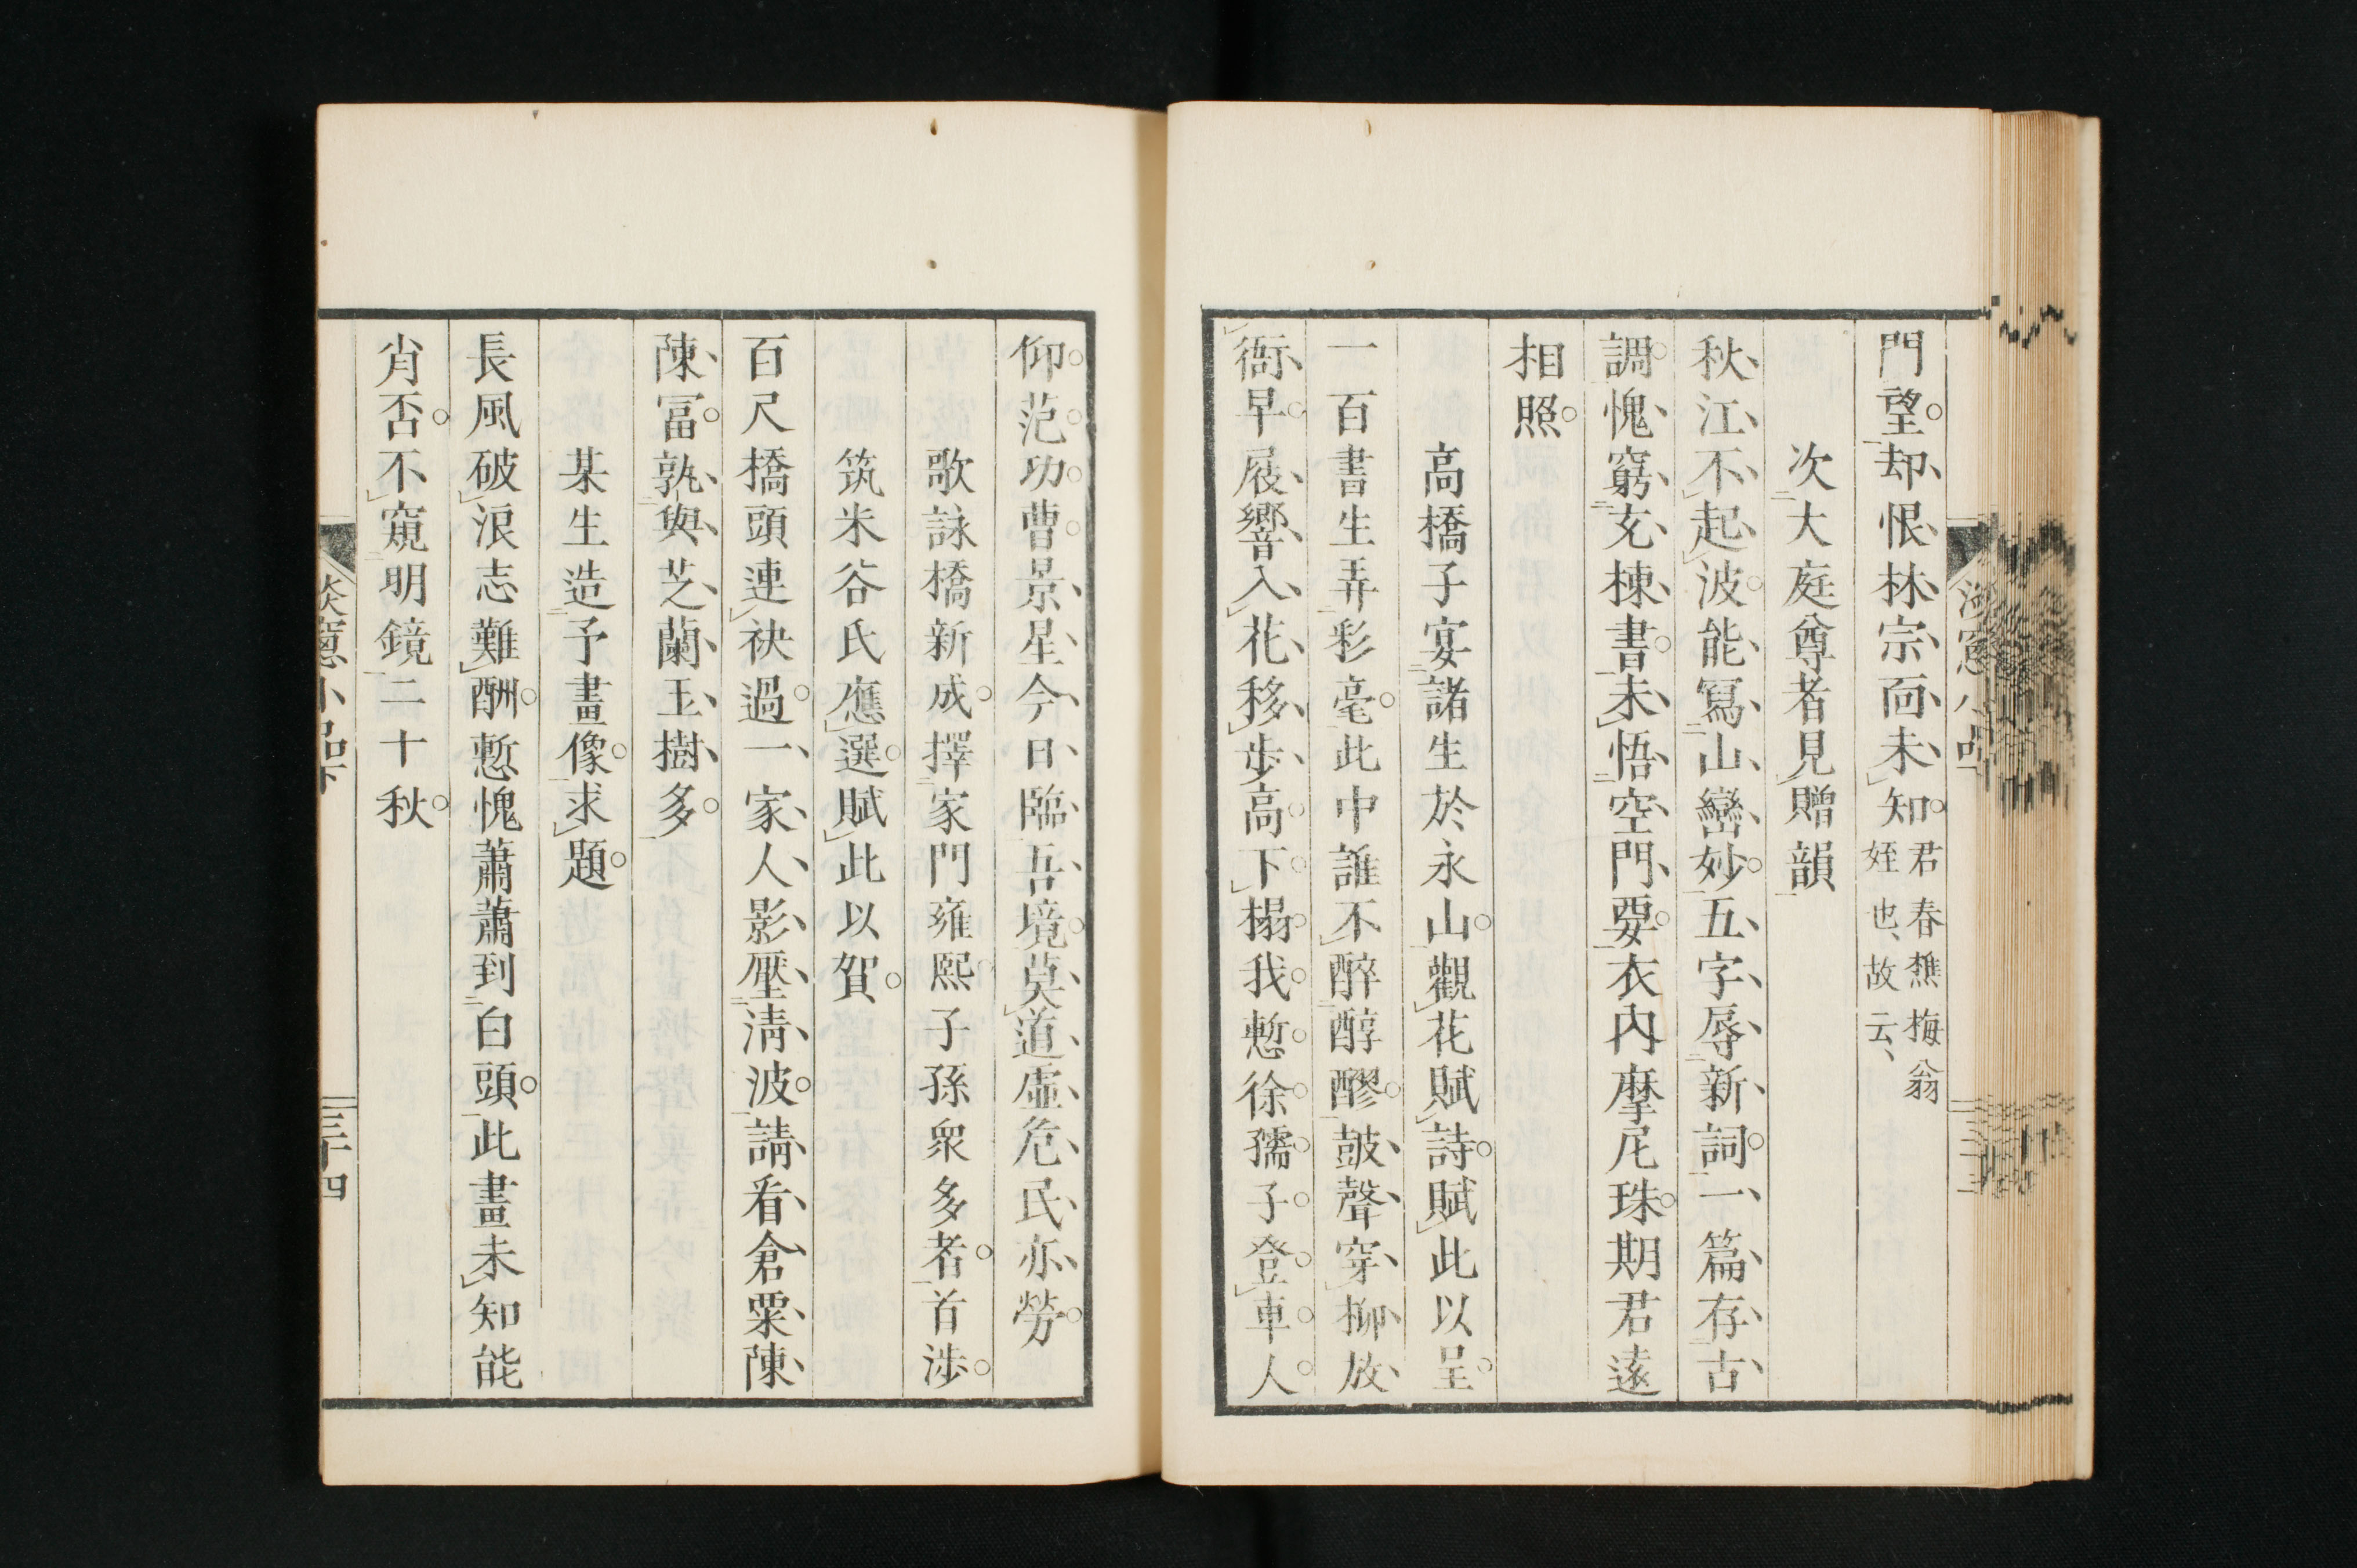 門望。却恨林宗面未知。君春樵梅翁
姪也、故云、
次大庭尊者見贈韻
秋江不起波。能寫山巒妙。五字辱新詞。一篇存古
調。愧窮玄棟書。未悟空門要。衣內摩尼珠。期君遠
相照。
高橋子宴諸生於永山。觀花賦詩。賦此以呈。
一百書生弄彩毫。此中誰不醉醇醪。鼓聲穿柳放
衙早。屐響入花移步高。下榻我慙徐孺子。登車人
仰范功曹。景星今日臨吾境。莫道虛危民亦勞。
歌詠橋新成。擇家門雍熙。子孫衆多者。首涉。
筑米谷氏應選。賦此以賀。
百尺橋頭連袂過。一家人影壓淸波。請看倉粟陳
陳冨。孰與芝蘭玉樹多。
某生造予畫像。求題。
長風破浪志難酬。慙愧蕭蕭到白頭。此畫未知能
肖否。不窺明鏡二十秋。
三十四